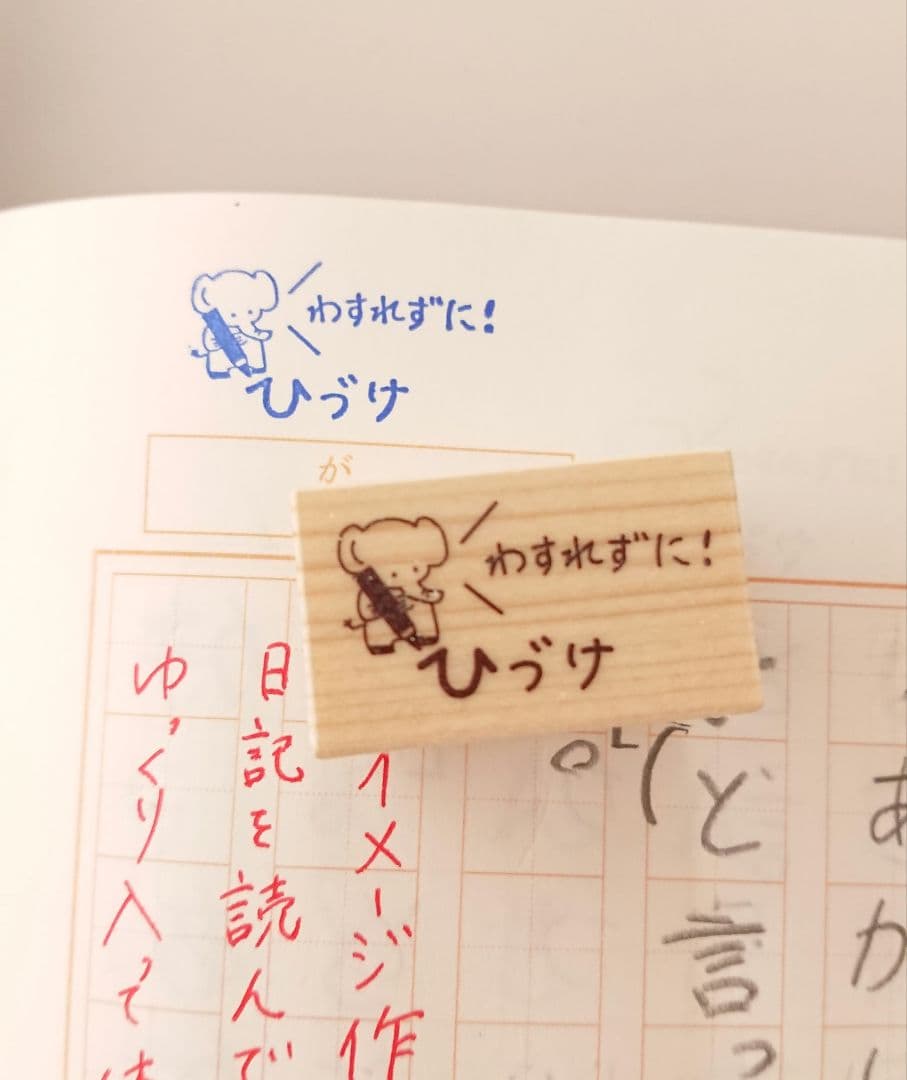 わすれずに!
ひづけ
が
わすれずに!
ひづけ
あか
ど言っ
」
イメージ作
日記を読んで
ゆっくり入って